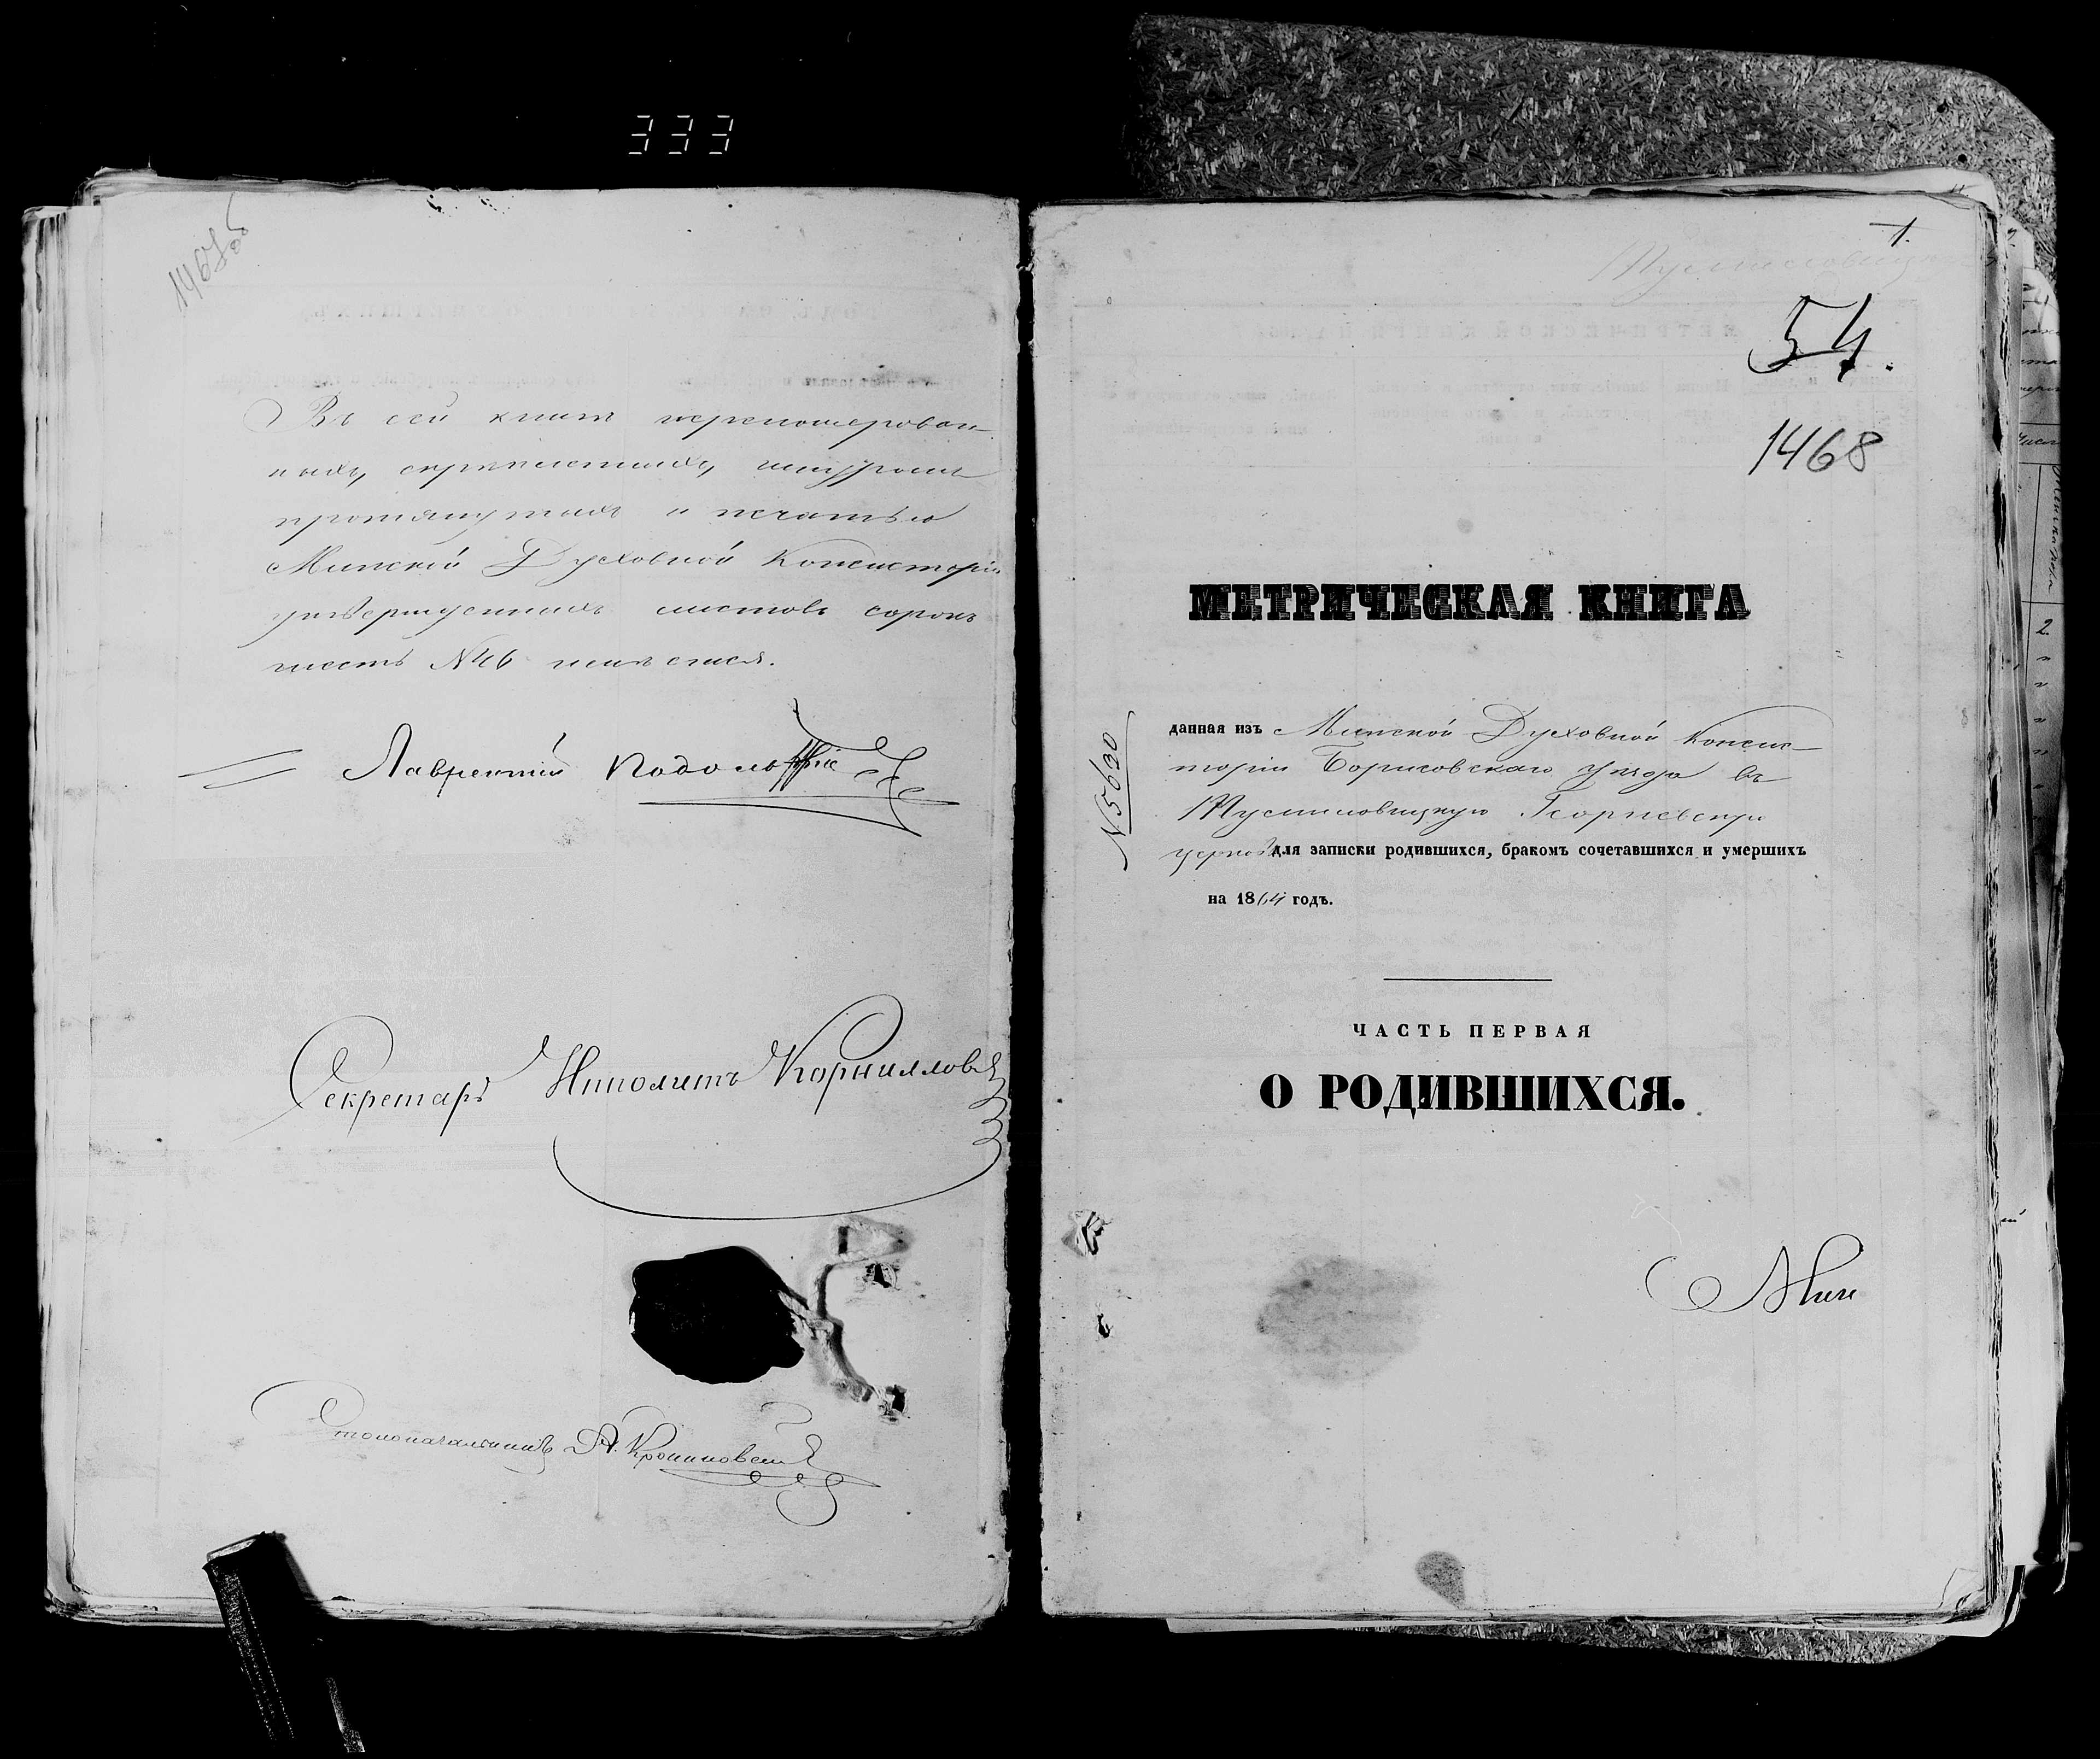 333
1467об
Въ сей книгѣ перенумерован-
ныхъ, скрѣпленныхъ, шнуромъ
протянутыхъ и печатью
Минской Духовной Консисторіи
утвержденныхъ листовъ сорокъ
шесть №46
Лаврентій
Секретарь Ипполитъ Корниловъ
Столоначальникъ А.
1.
54.
1468
МЕТРИЧЕСКАЯ КНИГА
№5630
данная изъ Минской Духовной Консис-
торіи Борисовскаго уѣзда въ
Мстисловицкую Георгіевскую
церковь для записки родившихся, бракомъ сочетавшихся и умершихъ
на 1864 годъ.
ЧАСТЬ ПЕРВАЯ
О РОДИВШИХСЯ.
Мин